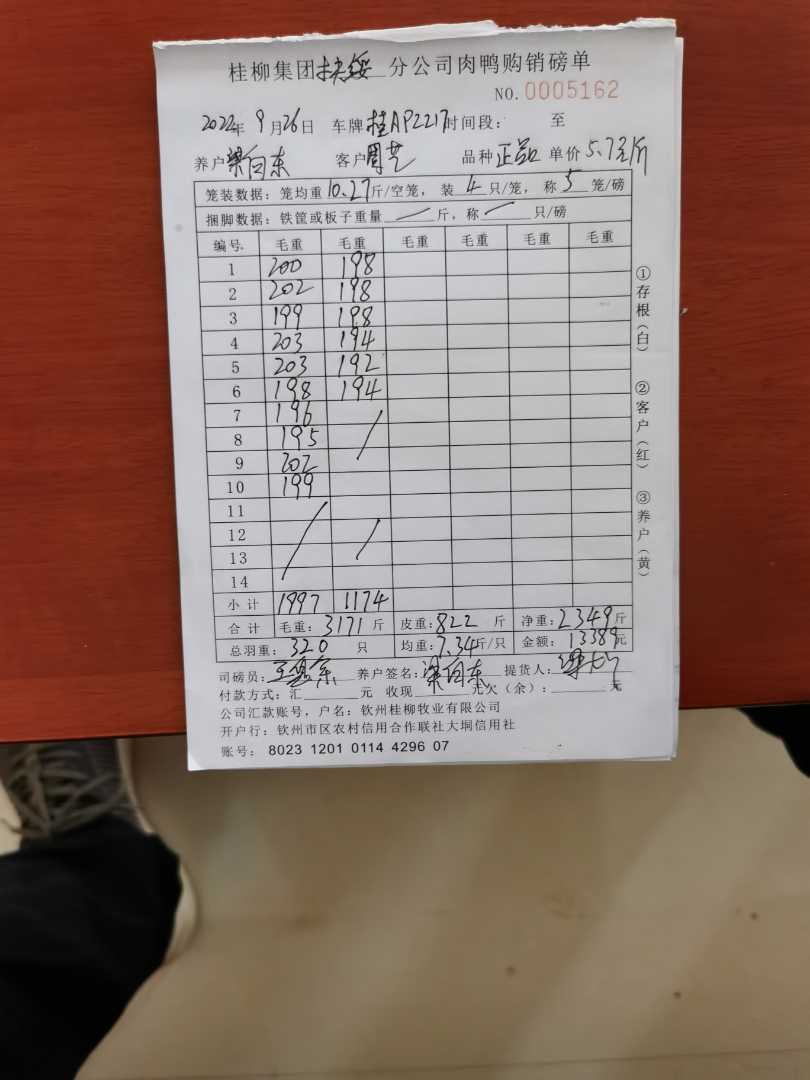 桂柳集团扶绥分公司肉鸭购销磅单
NO.0005162
2022年9月26日 车牌桂AP2217时间段: 至
养户梁向东 客户周艺 品种正品 单价5.7元/斤
笼装数据: 笼均重10.27斤/空笼, 装4只/笼, 称5笼/磅
捆脚数据: 铁筐或板子重量 / 斤, 称 / 只/磅
编号 毛重 毛重 毛重 毛重 毛重 毛重
1 200 198
2 202 198
3 199 198
4 203 194
5 203 192
6 198 194
7 196
8 195
9 202
10 199
11
12
13
14
小计 1997 1174
合计 毛重:3171斤 皮重:822斤 净重:2349斤
总羽重: 320 只 均重:7.34斤/只 金额:13389元
司磅员: 养户签名:梁向东 提货人:
付款方式:汇 元 收现 元欠(余): 元
公司汇款账号, 户名: 钦州桂柳牧业有限公司
开户行: 钦州市区农村信用合作联社大垌信用社
账号: 8023 1201 0114 4296 07
①存根(白)
②客户(红)
③养户(黄)